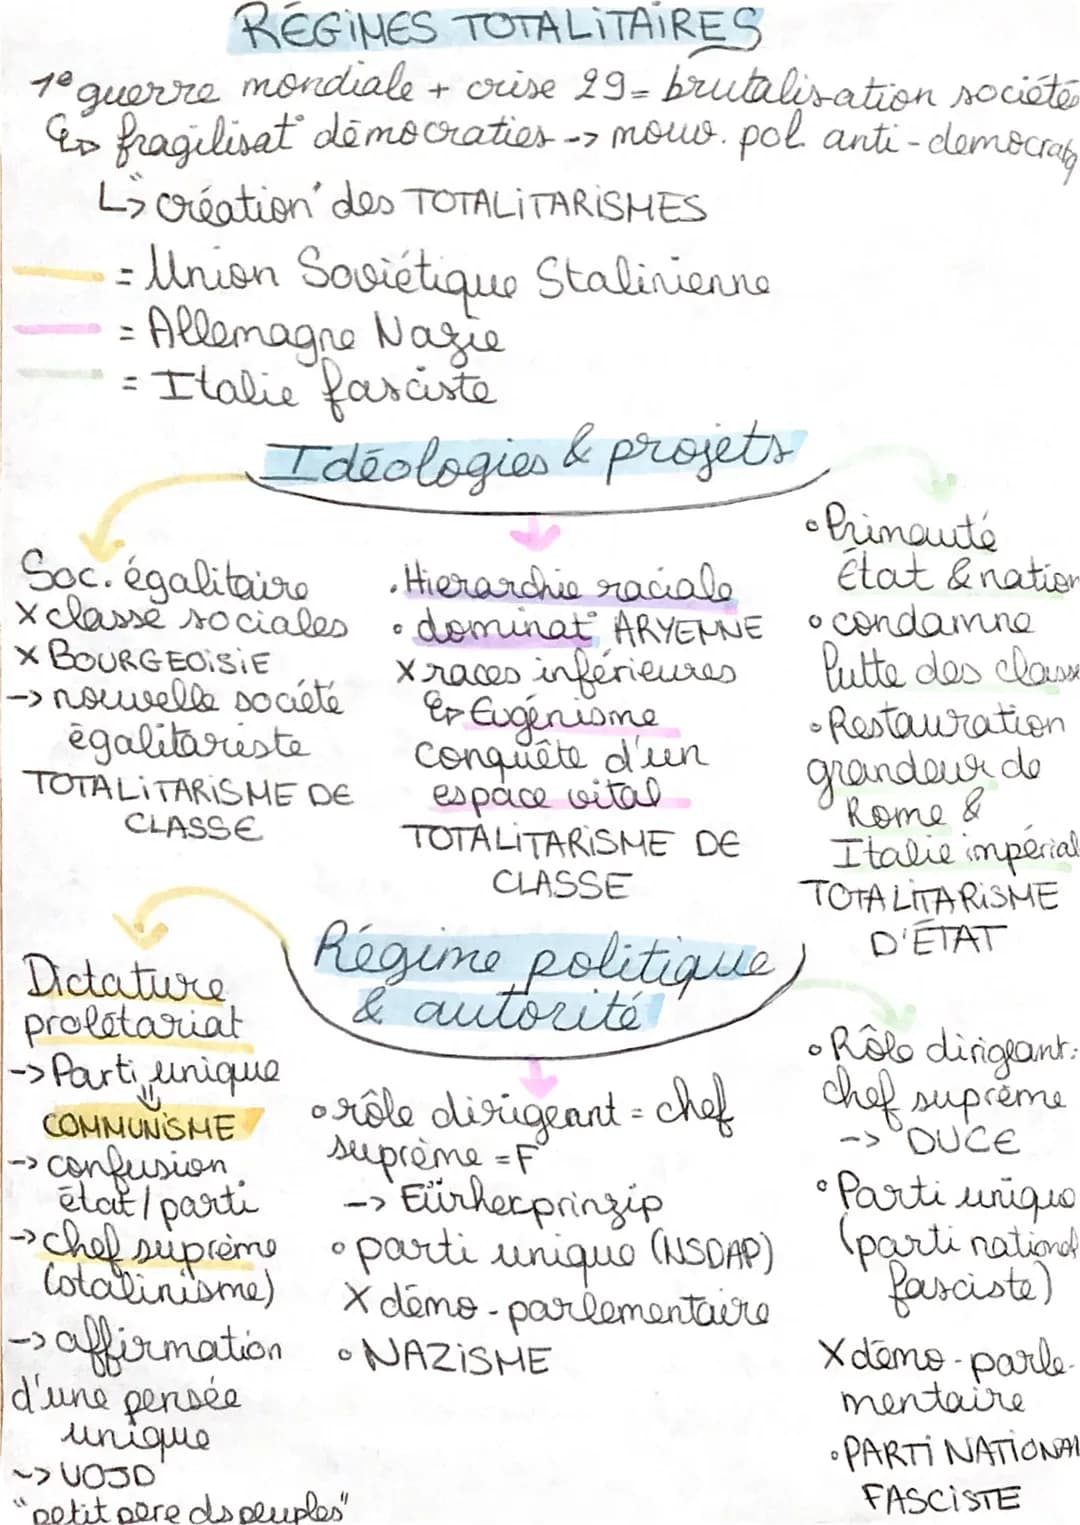 RÉGIMES TOTALITAIRES
1e guerre mondiale + crise 29 = brutalisation sociétés
↳ fragilisat° démocraties -> mouv. pol. anti-démocratq
↳ création des TOTALITARISMES
= Union Soviétique Stalinienne
= Allemagne Nazie
= Italie fasciste
Idéologies & projets
Soc. égalitaire
X classe sociales
X BOURGEOISIE
-> nouvelle société
égalitariste
TOTALITARISME DE
CLASSE
• Hierarchie raciale
• dominat° ARYENNE
X races inférieures
↳ Eugénisme
conquête d'un
espace vital
TOTALITARISME DE
CLASSE
• Primauté
État & nation
• condamne
lutte des classe
• Restauration
grandeur de
Rome &
Italie impérial
TOTALITARISME
D'ÉTAT
Régime politique
& autorité
Dictature
prolétariat
-> Parti unique
⇓
COMMUNISME
-> confusion
état / parti
-> chef suprème
(otalinisme)
-> affirmation
d'une pensée
unique
~> VOJD
"petit père ds peuples"
• rôle dirigeant = chef
suprème = F
-> Eürherprinzip
• parti unique (NSDAP)
X démo-parlementaire
• NAZISME
• Rôle dirigeant:
chef suprème
-> DUCE
• Parti unique
(parti national
fasciste)
X démo-parle-
mentaire
• PARTI NATIONAL
FASCISTE